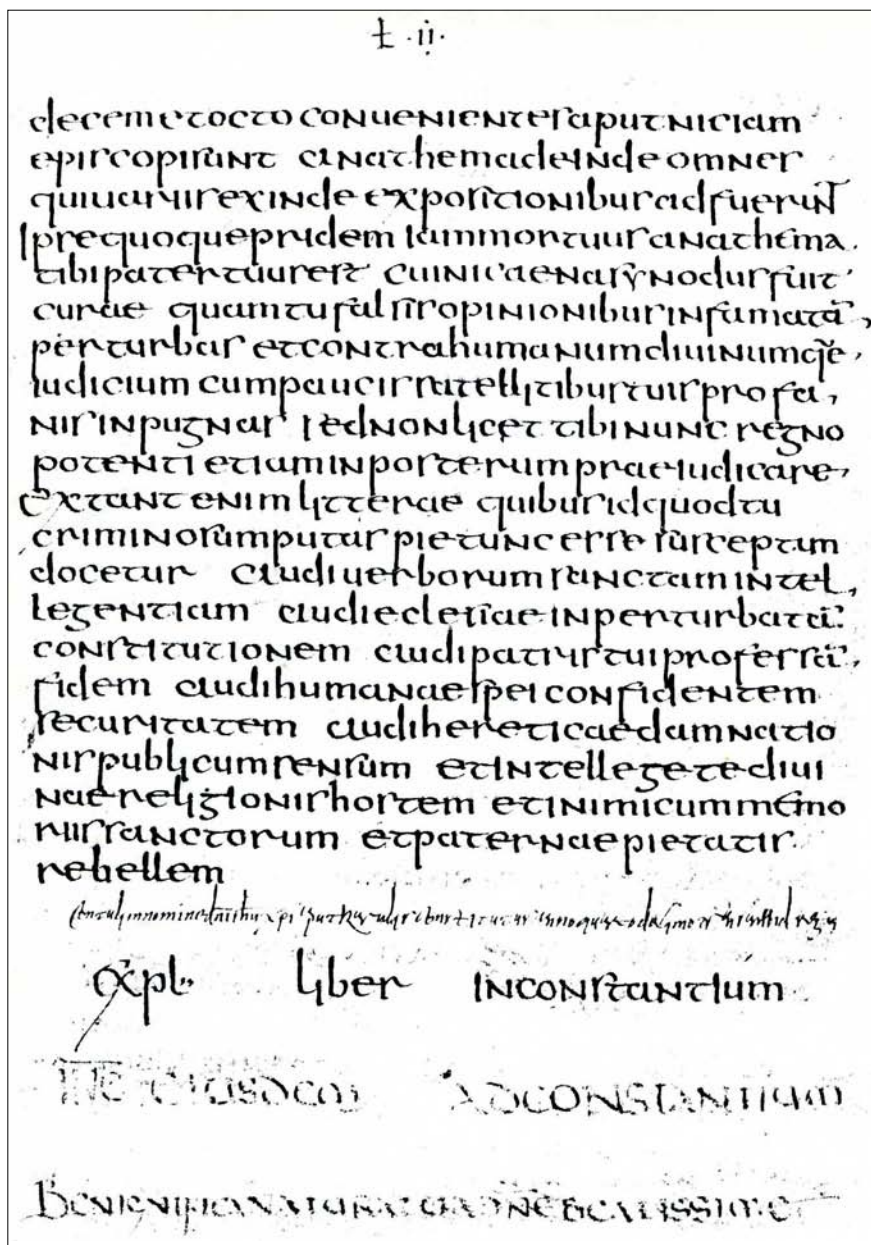 ł ·ii·
decem et octo conuenienter aput niciam
episcopi sunt anathema deinde omnes
qui uariis exinde expositionibus adfuerīt
Ipse quoque pridem iam mortuus anathema.
tibi pater tuus est cui nicaena synodus fuit
curae quam tu falsis opinionibus infamatā,
perturbas et contra humanum diuinumq̄e,
iudicium cum paucis satellitibus tuis profa,
nis inpugnas sed non licet tibi nunc regno
potenti etiam in posterum praeiudicare,
extant enim litterae quibus id quod tu
criminosum putas pie tunc esse susceptum
docetur audi uerborum sanctam intel,
legentiam audi eclesiae inperturbatā.
constitutionem audi patris tui professā,
fidem audi humanae spei confidentem
securitatem audi hereticae damnatio
nis publicum sensum et intellege te diui
nae religionis hostem et inimicum memo
riis sanctorum et paternae pietatis.
rebellem
contuli in nomine dn̄i ihū xpi aput
expl·· liber in constantium
INC EIUSDEM AD CONSTANTIUM
BENIGNIFICA NATURA TUA DNE BEATISSIME